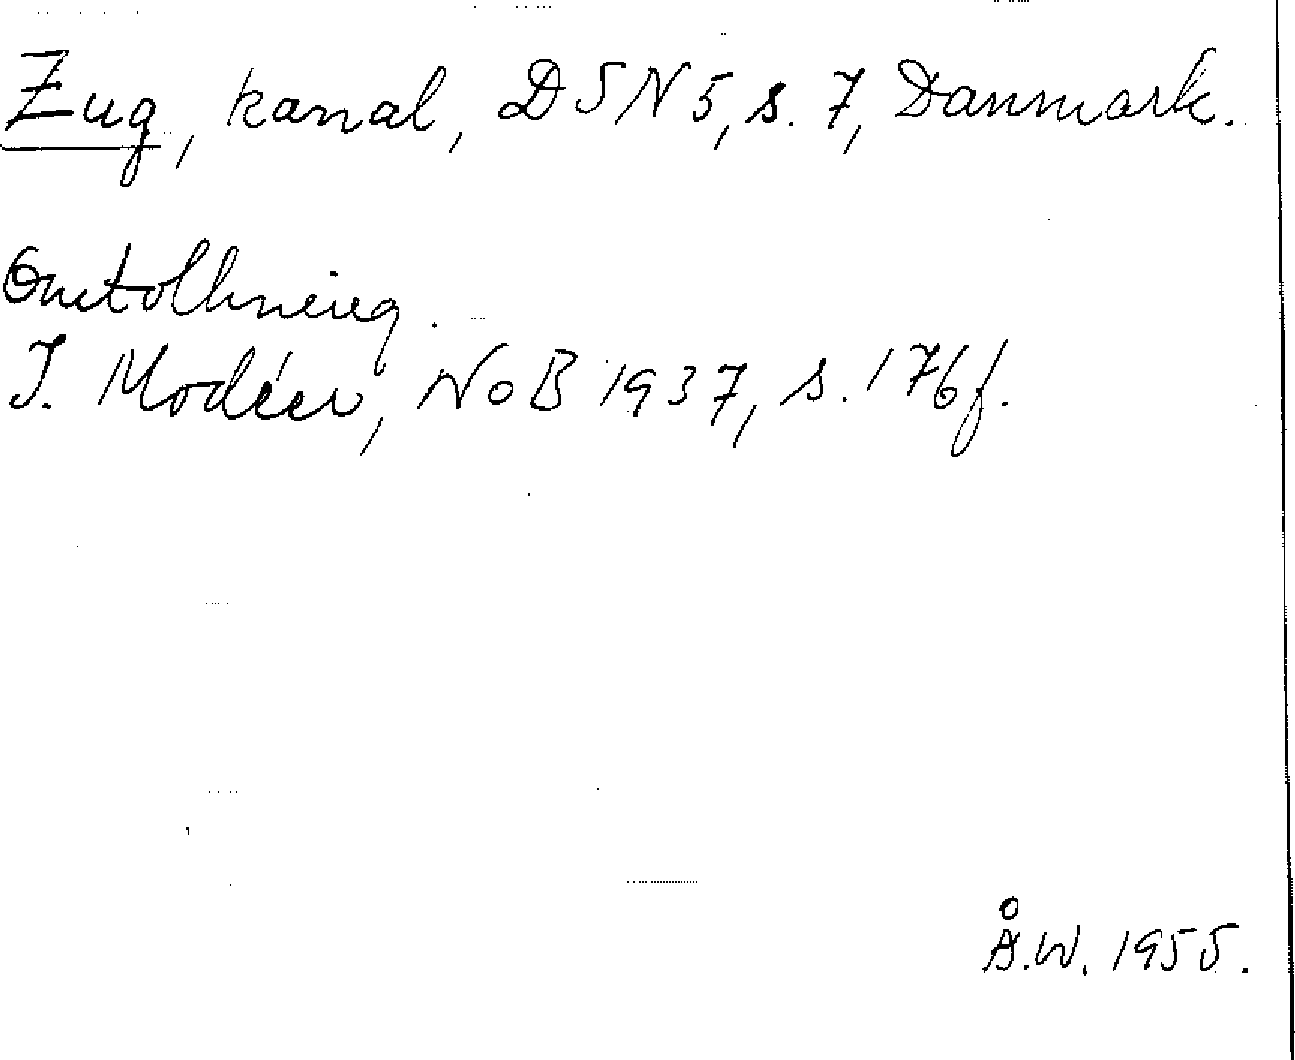 Zug, kanal, DSN 5, s. 7, Danmark.
Omtolkning.
I. Modéer, NoB 1937, s. 176 f.
Å.W. 1955.